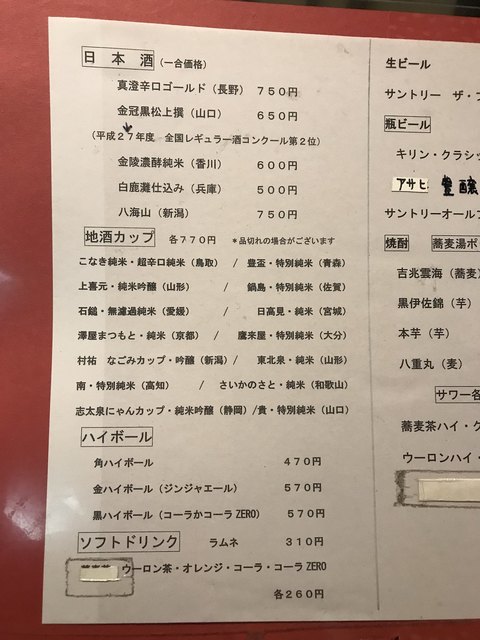 日本酒（一合価格）
真澄辛口ゴールド（長野） ７５０円
金冠黒松上撰（山口） ６５０円
（平成２７年度 全国レギュラー酒コンクール第２位）
金陵濃酵純米（香川） ６００円
白鹿灘仕込み（兵庫） ５００円
八海山（新潟） ７５０円
地酒カップ 各７７０円 ＊品切れの場合がございます
こなき純米・超辛口純米（鳥取） / 豊盃・特別純米（青森）
上喜元・純米吟醸（山形） / 鍋島・特別純米（佐賀）
石鎚・無濾過純米（愛媛） / 日高見・純米（宮城）
澤屋まつもと・純米（京都） / 鷹来屋・特別純米（大分）
村祐 なごみカップ・吟醸（新潟）/ 東北泉・純米（山形）
南・特別純米（高知） / さいかのさと・純米（和歌山）
志太泉にゃんカップ・純米吟醸（静岡）/貴・特別純米（山口）
ハイボール
角ハイボール ４７０円
金ハイボール（ジンジャエール） ５７０円
黒ハイボール（コーラかコーラZERO） ５７０円
ソフトドリンク ラムネ ３１０円
ウーロン茶・オレンジ・コーラ・コーラZERO
各２６０円
生ビール
サントリー ザ・プ
瓶ビール
キリン・クラシッ
アサヒ 豊醸
サントリーオールフ
焼酎 蕎麦湯ポ
吉兆雲海（蕎麦）
黒伊佐錦（芋）
本芋（芋）
八重丸（麦）
サワー各
蕎麦茶ハイ・ク
ウーロンハイ・